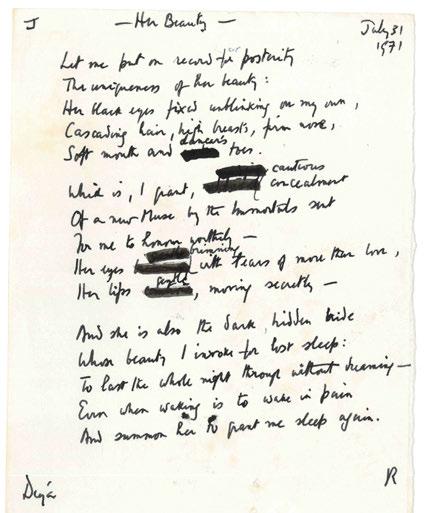 J
— Her Beauty —
July 31
1971
Let me put on record for posterity
The uniqueness of her beauty:
Her black eyes fixed unblinking on my own,
Cascading hair, high breasts, firm nose,
Soft mouth and dancer's toes.
Which is, I grant, cautious concealment
Of a new Muse by the Immortals sent
For me to honour worthily —
Her eyes brimming with tears of more than love,
Her lips gentle, moving secretly —
And she is also the dark, hidden bride
Whose beauty I invoke for lost sleep:
To last the whole night through without dreaming —
Even when waking is to wake in pain
And summon her to grant me sleep again.
Deyá
R